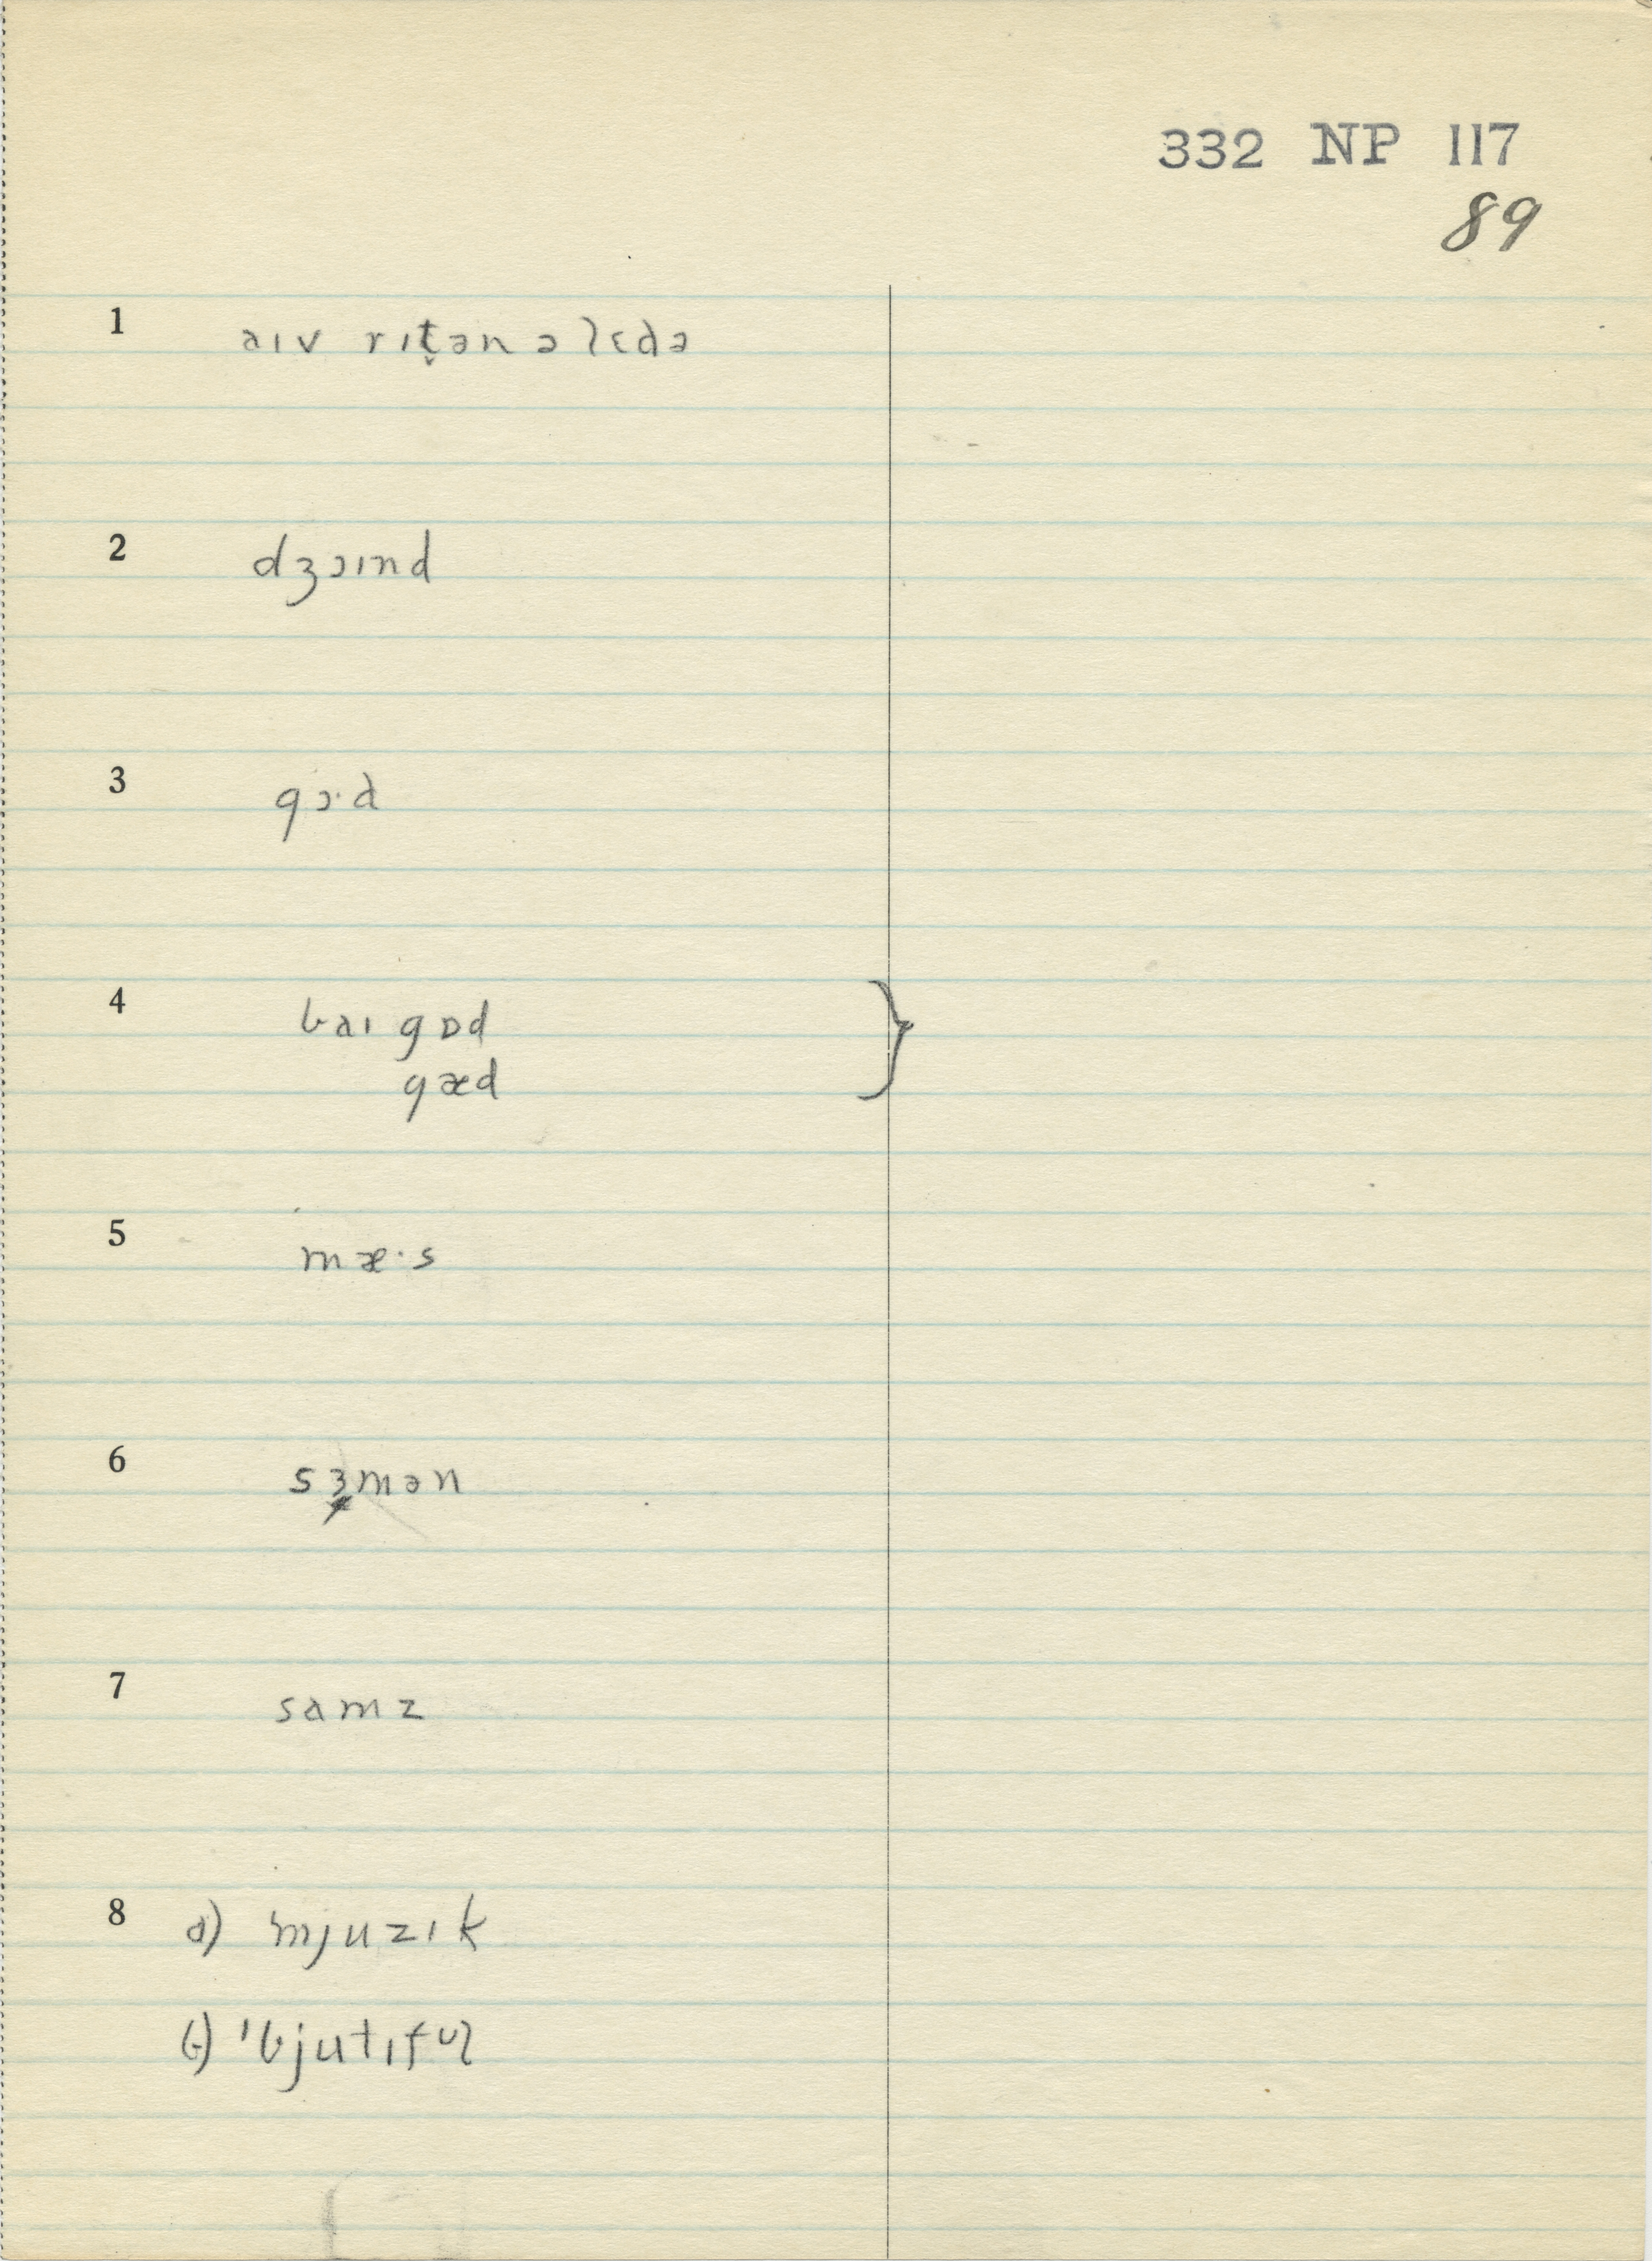 332 NP 117
89
1 aɪv rɪt̬ən ə lɛdə
2 dʒɔɪnd
3 gɔˑd
4 baɪ gɒd }
gæd
5 mæˑs
6 sɜmən
7 samz
8 a) mjuzɪk
b) ˈbjutɪfʊl